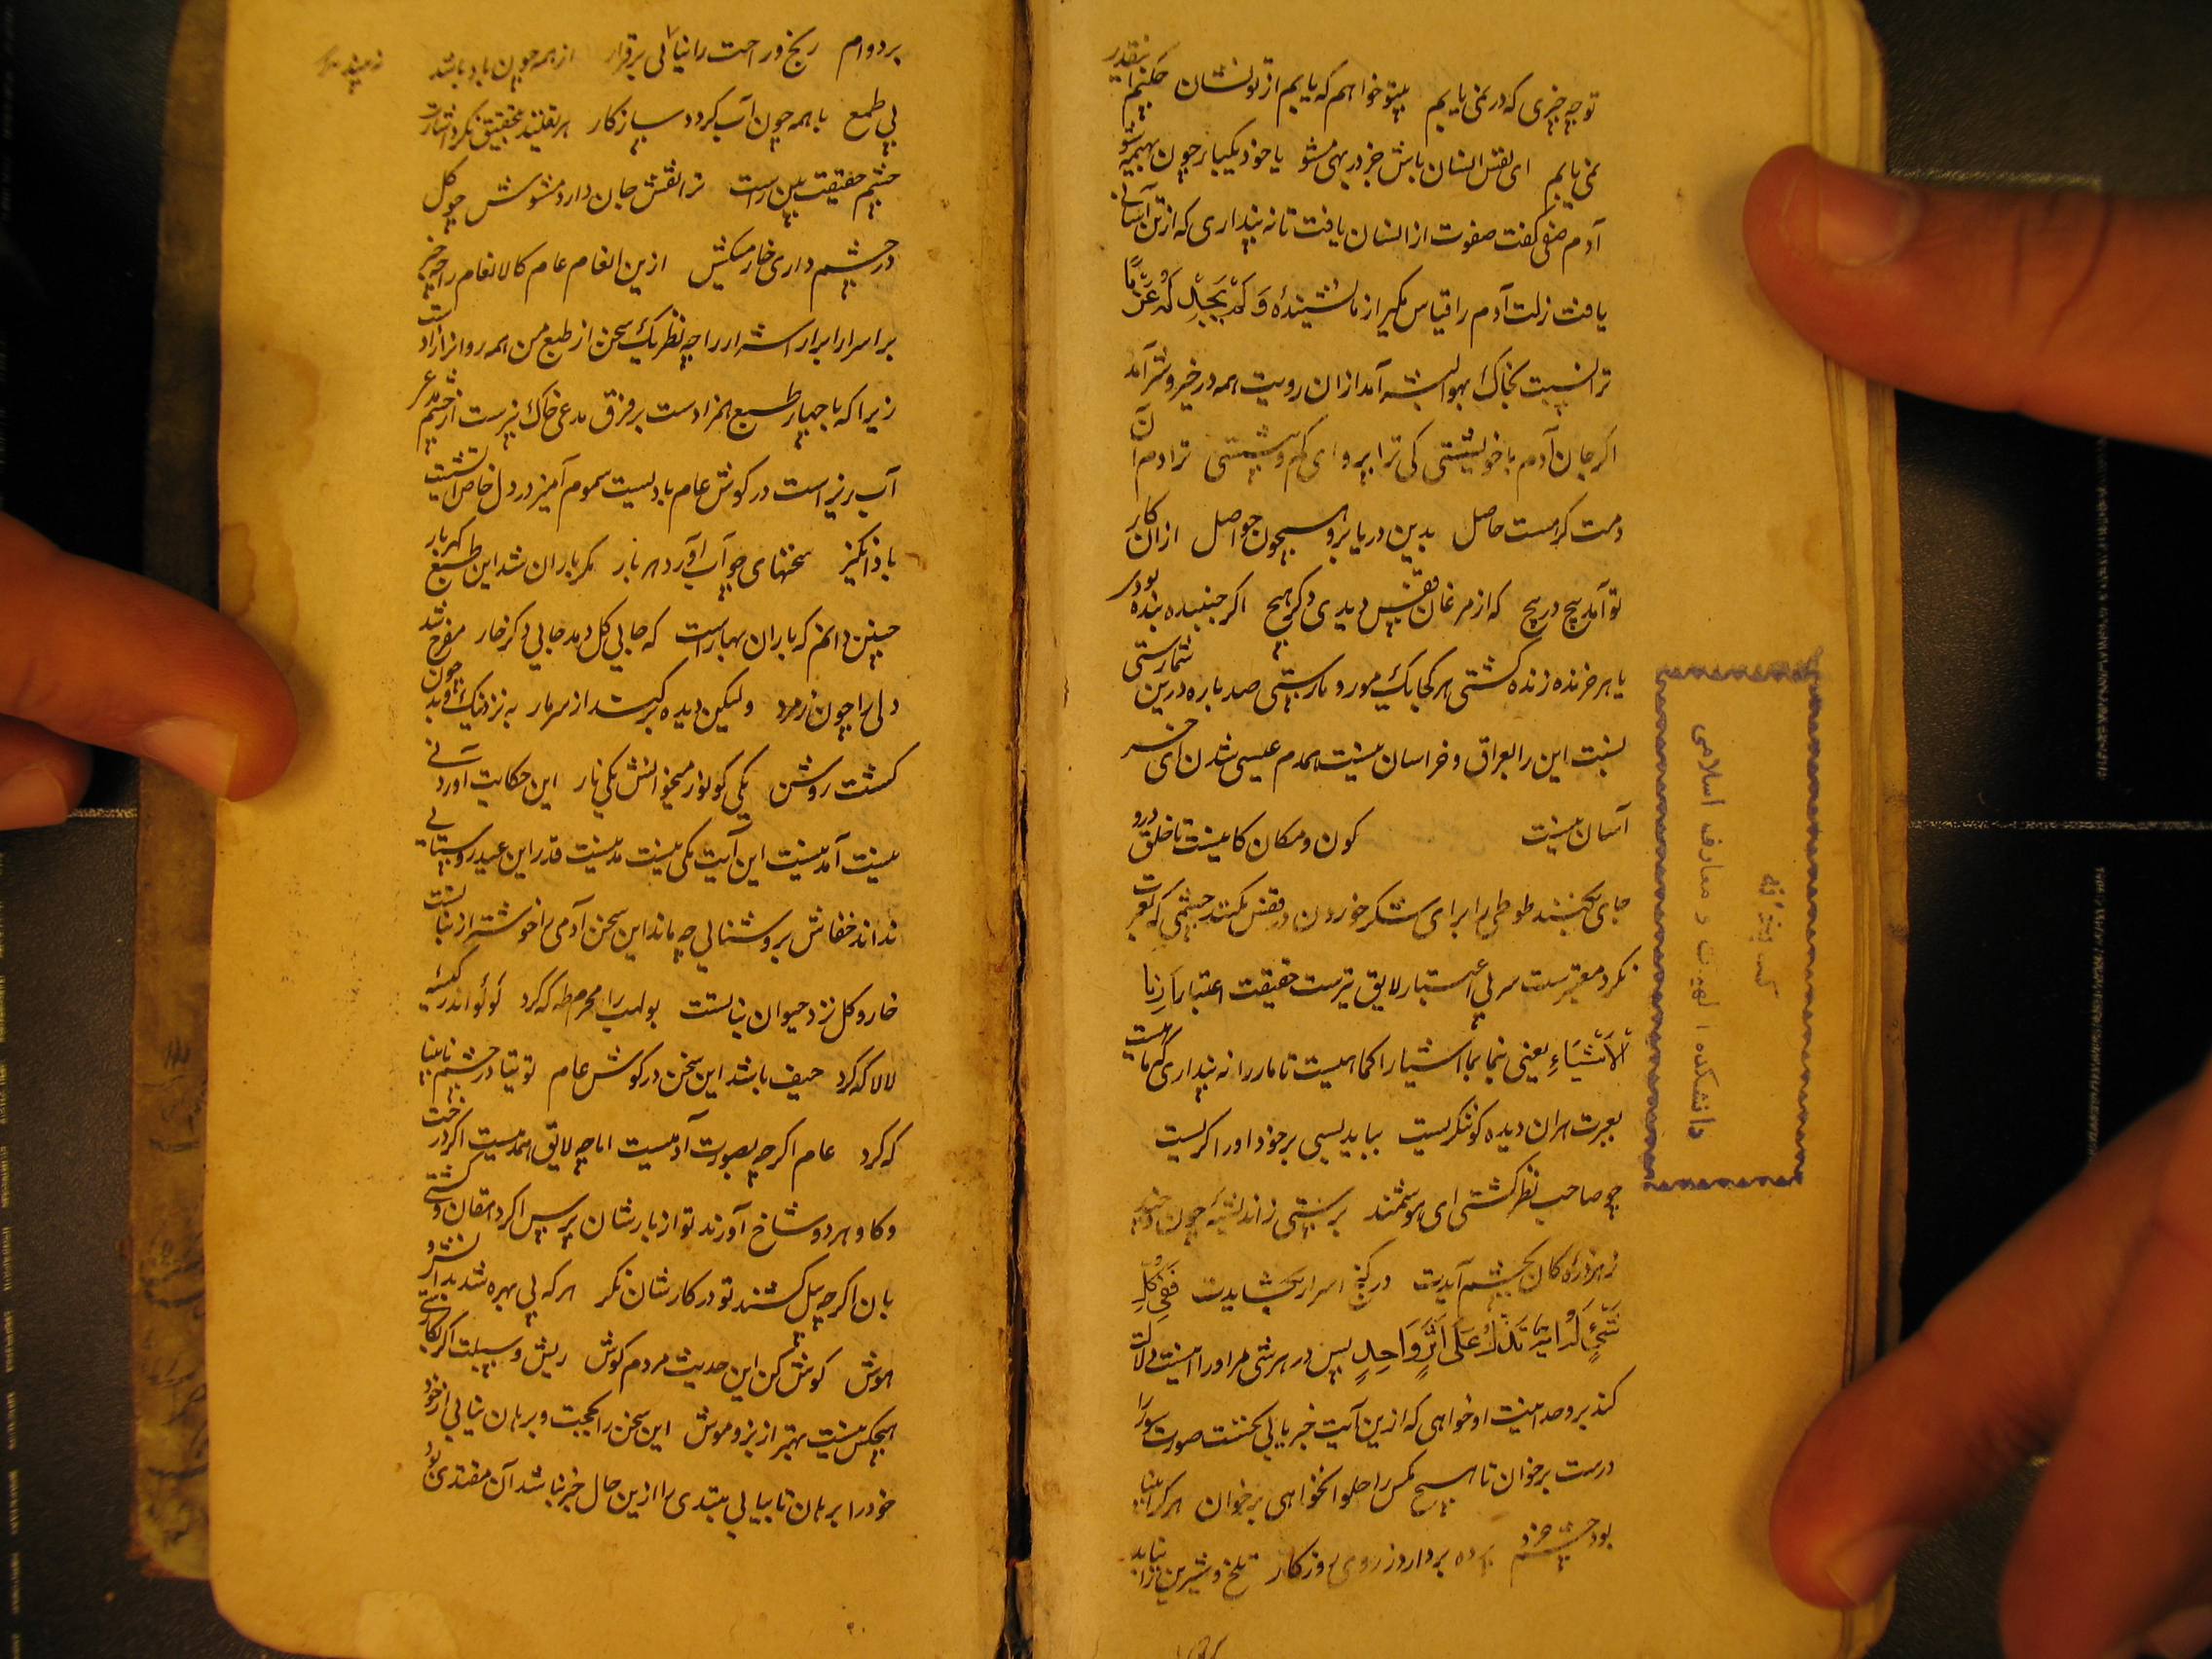 تو چه چیزی که در نمی یابم بیتو خواهم که یابم از تو نشان چکنم اینقدر
نمی یابم ای نفس انسان باش جز در بهی مشو با خود یکی بابر چون بهیمه مشو
آدم صفی گفت صفوت از انسان یافت تا نه پنداری که از تن آسانی
یافت زلت آدم را قیاس مگیر از ما نشنیدهٔ وَلَمْ نَجِدْ لَهُ عَزْمًا
ترا نسبت بخاک بهوا بسته آمد ازان رویت همه در خیر و شر آمد
اگر جان آدم با خویشتی کی ترا پروای کم و بیشتی ترا دم از آن
دمت گرمست حاصل بدین دریا برو همچون حواصل ازان کار
تو آمد پیچ در پیچ که از مرغان قفس دیدی دگر هیچ اگر جنبیده بنده بودی
یا هر خزنده زنده گشتی هر کجا یک مور و مارستی صد باره درین شمارستی
نسبت این را بعراق و خراسان نیست همدم عیسی شدن ای خر
آسان نیست کون و مکان کاینست تا خلق درو
جای کنند طوطی را برای شکر خوردن در قفس کنند چشمی که عبرت
نکرد معتبرست سر بی اعتبار لایق تبرست حقیقت اعتبار اَرِنَا
الْاَشْیَاءِ یعنی بنما بما اشیا را کما هیست تا مار را نه پنداری که ماهیست
بعبرت هران دیده کو ننگریست بباید بسی بر خود او را گریست
چو صاحب نظر گشتی ای هوشمند پرستی ز اندیشهٔ چون و چند
ز هر ذره کان بچشم آیدت در گنج اسرار بگشایدت فَفِی کُلِّ
شَیْءٍ لَهُ اٰیَةٌ تَدُلُّ عَلَی اَنَّهُ وَاحِدٍ پس در هر شی مر او را آیتیست دلالت
کند بر وحدانیت او خواهی که ازین آیت خبر یابی نخست صورت سورا
درست برخوان تا هیچ مگس را حلوا نخواهی برخوان هر کرا بینا
بود چشم خرد پرده بردارد ز روی روزگار تلخ و شیرین را نباید
بر دوام رنج و راحت را نیابی برقرار از همه چون باد باشد
بی طمع با همه چون آب گردد سازگار هر تقلید بتحقیق نکرد اشارت
چشم حقیقت بین راست ترا نقش جان دارد مشوش چو گل
در چشم داری خار مکش ازین انعام عام کالانعام را چه خبر
بر اسرار ابرار اشرار را چه نظر یک سخن از طبع من همه روا نزاد است
زیرا که با چهار طبع همزادست بر فرق مدعی خاک بیزست از چشم مدعی
آب ریز است در گوش عام بادیست سموم آمیز در دل خاص آتشیست
باد انگیز سخنهای چو آب آورد هر بار مگر باران شد این طبع گهربار
چنین دانم که باران بهارست که جایی گل دمد جایی دگر خار مفرح شد
دلی را چون زمرد ولیکن دیده برکند از سر مار به نزد نیک و بد چون
گشت روشن یکی گو نور میخوانش یکی نار این حکایت آوردنی
نیست آمدنیست این آیت مکی نیست مدنیست قدر این عید روستایی
نداند خفاش بروشنایی چه ماند این سخن آدمی را خوشتر از نباتست
خار و گل نزد حیوان نباتست بولهب را محرم طه که کرد لؤلؤ اندر کیسه
لالا که کرد حیف باشد این سخن در گوش عام توتیا در چشم نابینا
که کرد عام اگر چه بصورت آدمیست اما چه لایق همدمیست اگر درخت
و گاو هر دو شاخ آورند تو از بارشان پرس اگر دهقان و کشتی
بان اگر چه بیل کشند تو در کارشان نگر هر که بی بهره شد
هوش گوش کن این حدیث مردم گوش ریش و سبلت اگر بکارستی
هیچکس نیست بهتر از بز و موش این سخن را بحجت و برهان نیابی از خود
خود را برهان تا بیابی مبتدی را ازین حال خبر نباشد آن مقتدی بود
کتابخانه
دانشکده الهیات و معارف اسلامی